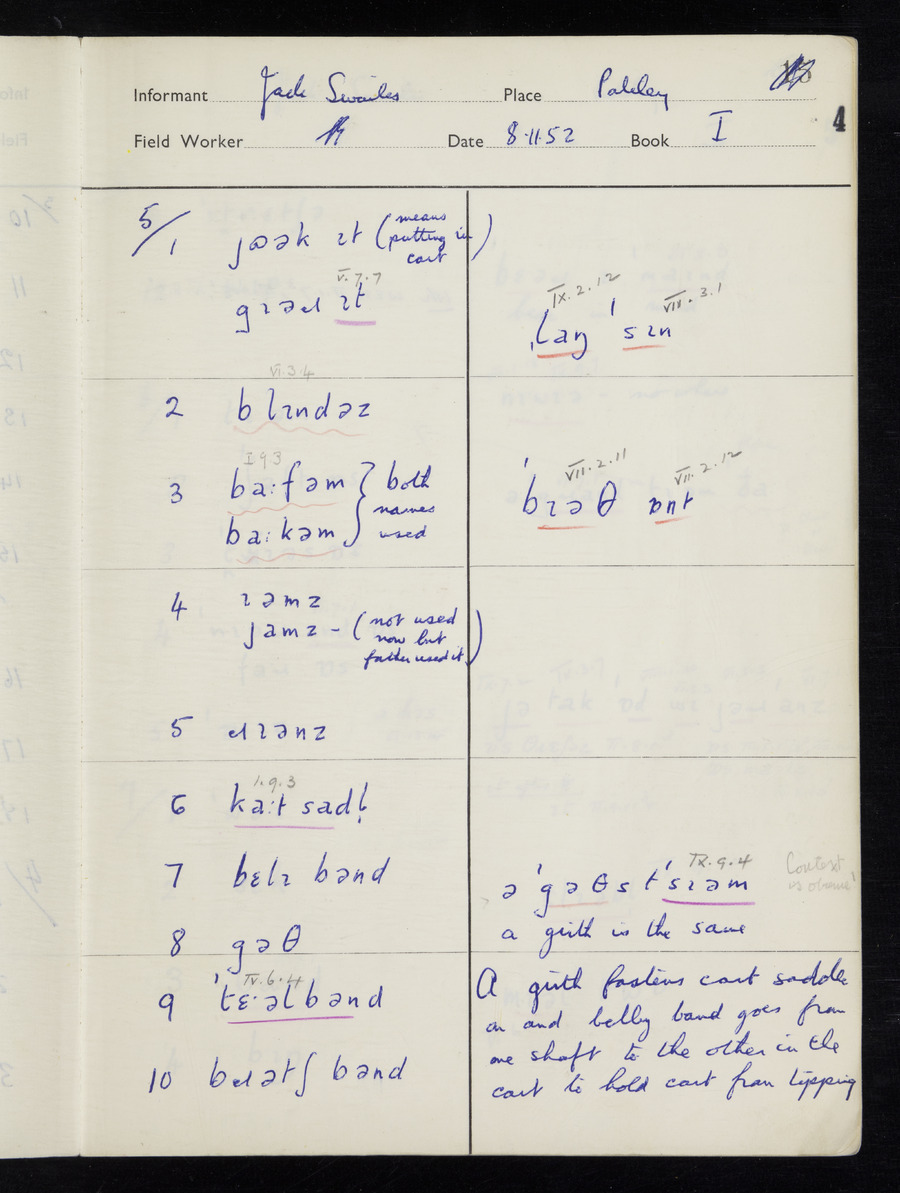 Informant Jack Swailes Place Pateley
Field Worker Date 8·11·52 Book I
4
5/1 jɒək ɪt (means putting in cart)
V.7.7
gɪəɹ ɪt
IX.2.12 VII.3.1
ˌlaŋ ˈsɪn
VI.3.4
2 blɪndəz
I 9 3
3 ba:fəm } both names used
ba:kəm
VII.2.11 VII.2.12
ˈbɪəθ ɒnt
4 ɪəmz
jamz - (not used now but father used it)
5 ɹɪənz
1.9.3
6 ka:t sadl̩
7 bɛlɪ bənd
8 gəθ
IX.9.4
ə ˈgəθs tˈsɪəm
Context is obscure!
a girth is the same
IV.6.4
9 ˈtɛ·əlbənd
10 bɹətʃ bənd
A girth fastens cart saddle
on and belly band goes from
one shaft to the other in the
cart to hold cart from tipping